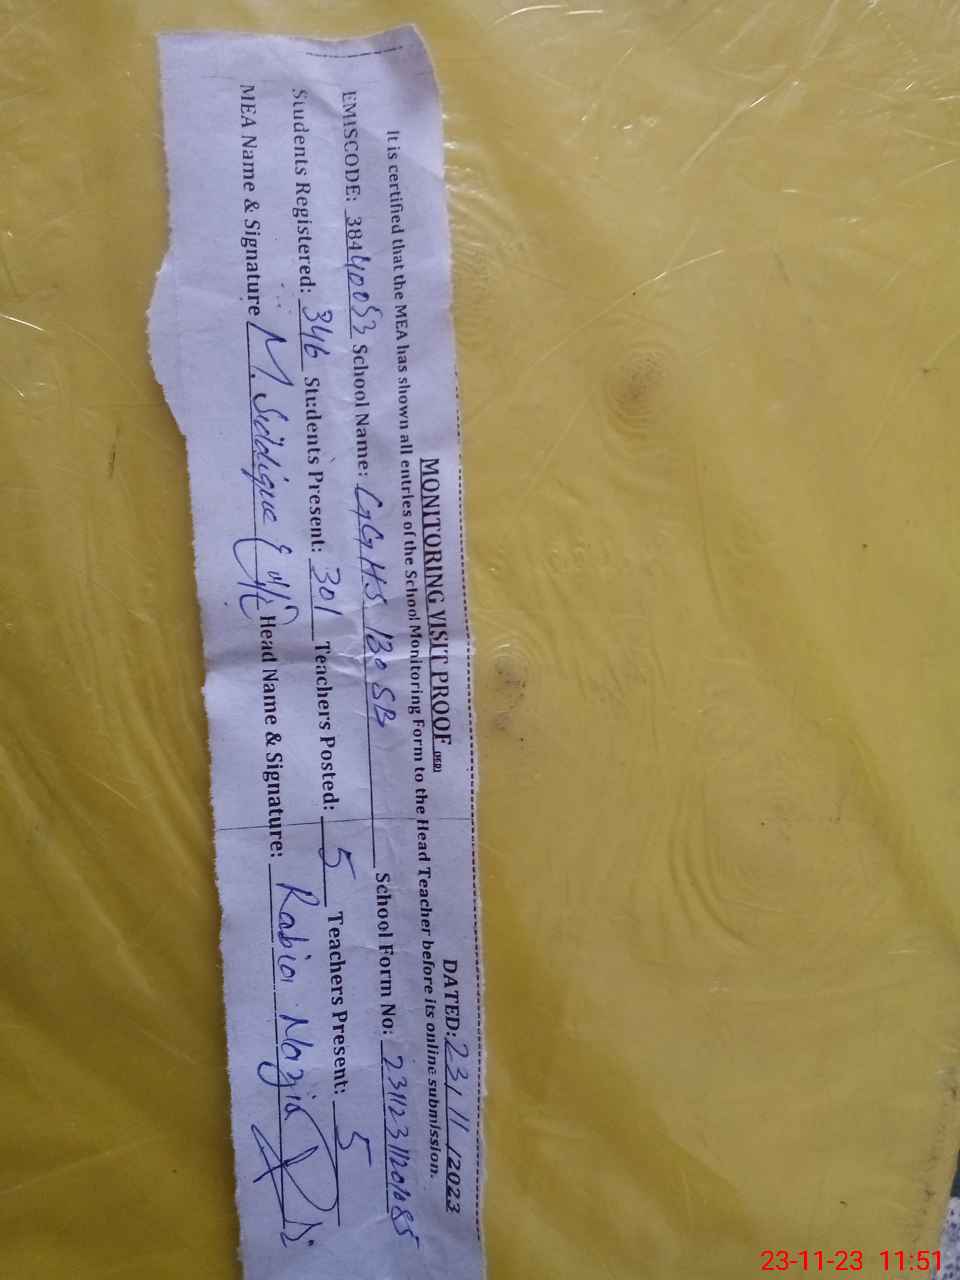 MONITORING VISIT PROOF (HR) DATED: 23/11/2023
It is certified that the MEA has shown all entries of the School Monitoring Form to the Head Teacher before its online submission.
EMISCODE: 38440053 School Name: GGHS 130 SB School Form No:
Students Registered: 346 Students Present: 301 Teachers Posted: 5 Teachers Present: 5
MEA Name & Signature M. Siddique Head Name & Signature: Rabia Nazia
23-11-23 11:51